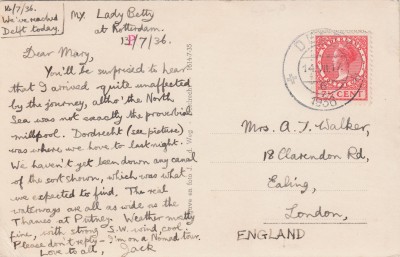 14/7/36.
We've reached
Delft today.
MY Lady Betty
at Rotterdam.
13/7/36.
Dear Mary,
You'll be surprised to hear
that I arrived quite unaffected
by the journey, altho' the North
Sea was not exactly the proverbial
millpool. Dordrecht (see picture)
was where we hove to last night.
We haven't yet been down any canal
of the sort shown, which was what
we expected to find. The real
waterways are all as wide as the
Thames at Putney. Weather mostly
fine, with strong S.W. wind, cool.
Please don't reply - I'm on a Nomad tour.
Love to all, Jack
Mrs. A. J. Walker,
18 Clarendon Rd,
Ealing,
London,
ENGLAND
NEDERLAND
7½ CENT
1936